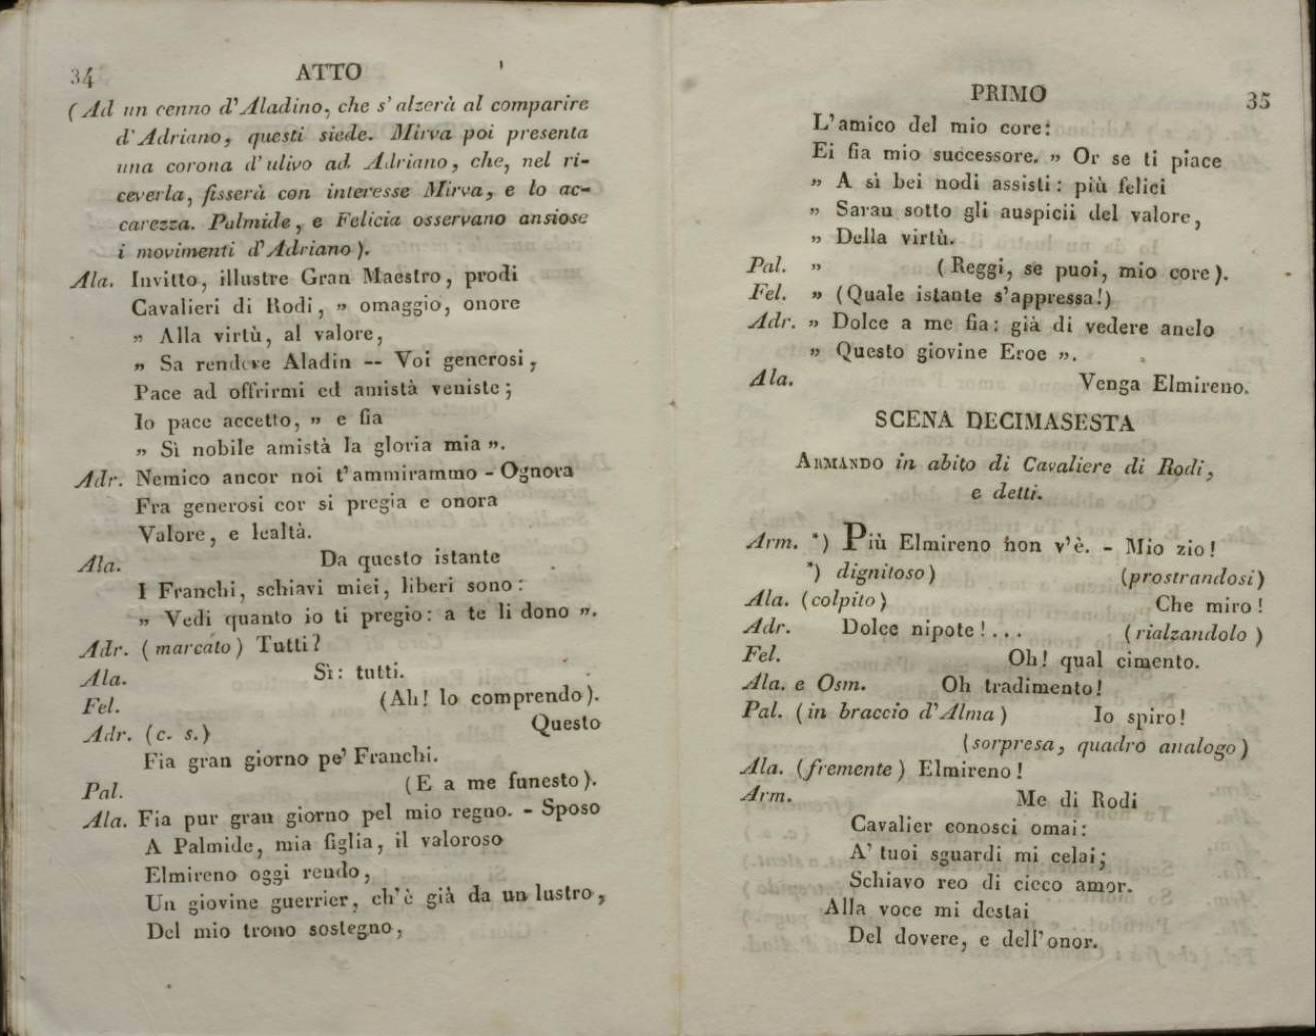 34
ATTO
(Ad un cenno d'Aladino, che s'alzerà al comparire
d'Adriano, questi siede. Mirva poi presenta
una corona d'ulivo ad Adriano, che, nel ri-
ceverla, fisserà con interesse Mirva, e lo ac-
carezza. Palmide, e Felicia osservano ansiose
i movimenti d'Adriano).
Ala. Invitto, illustre Gran Maestro, prodi
Cavalieri di Rodi, „ omaggio, onore
„ Alla virtù, al valore,
„ Sa rendere Aladin -- Voi generosi,
Pace ad offrirmi ed amistà veniste;
Io pace accetto, „ e fia
„ Sì nobile amistà la gloria mia „.
Adr. Nemico ancor noi t'ammirammo - Ognora
Fra generosi cor si pregia e onora
Valore, e lealtà.
Ala. Da questo istante
I Franchi, schiavi miei, liberi sono:
„ Vedi quanto io ti pregio: a te li dono „.
Adr. (marcato) Tutti?
Ala. Sì: tutti.
Fel. (Ah! lo comprendo).
Adr. (c. s.) Questo
Fia gran giorno pe' Franchi.
Pal. (E a me funesto).
Ala. Fia pur gran giorno pel mio regno. - Sposo
A Palmide, mia figlia, il valoroso
Elmireno oggi rendo,
Un giovine guerrier, ch'è già da un lustro,
Del mio trono sostegno,
PRIMO
35
L'amico del mio core:
Ei fia mio successore. „ Or se ti piace
„ A sì bei nodi assisti: più felici
„ Saran sotto gli auspicii del valore,
„ Della virtù.
Pal. „ (Reggi, se puoi, mio core).
Fel. „ (Quale istante s'appressa!)
Adr. „ Dolce a me fia: già di vedere anelo
„ Questo giovine Eroe „.
Ala. Venga Elmireno.
SCENA DECIMASESTA
ARMANDO in abito di Cavaliere di Rodi,
e detti.
Arm. *) Più Elmireno non v'è. - Mio zio!
*) dignitoso) (prostrandosi)
Ala. (colpito) Che miro!
Adr. Dolce nipote!... (rialzandolo)
Fel. Oh! qual cimento.
Ala. e Osm. Oh tradimento!
Pal. (in braccio d'Alma) Io spiro!
(sorpresa, quadro analogo)
Ala. (fremente) Elmireno!
Arm. Me di Rodi
Cavalier conosci omai:
A' tuoi sguardi mi celai;
Schiavo reo di cieco amor.
Alla voce mi destai
Del dovere, e dell'onor.